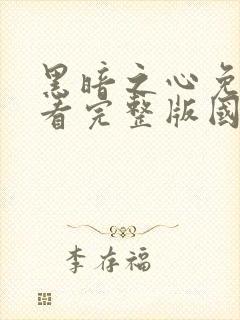 黑暗之心免
看完整版國
李存福